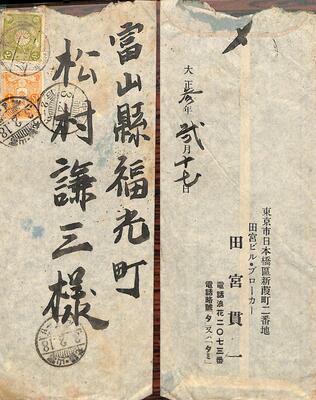 富山縣福光町
松村謙三様
大正参年弐月十七日
東京市日本橋區新葭町二番地
田宮ビル・ブローカー
田宮貫一
電話浪花二〇七三番
電話略號タ、又ハ(タミ)